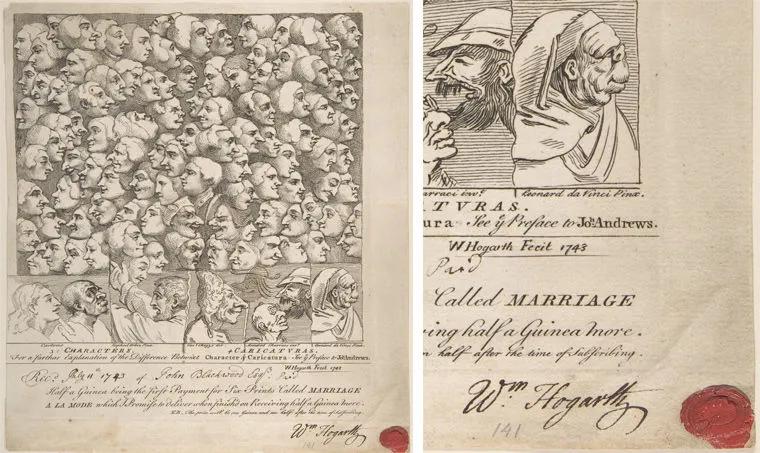 Cartons
Leonard da Vinci Pinx.
3 CHARACTERS
4 CARICATURAS
For a farther Explanation of the Difference Betwixt Character & Caricatura See ẙ Preface to Joh. Andrews.
W Hogarth Fecit 1743
Rec.d July 11th 1743 of John Blackwood Esqr. Paid
Half a Guinea being the first Payment for Six Prints Called MARRIAGE
A LA MODE which I Promise to Deliver when finish'd on Receiving half a Guinea more.
N.B. The price will be one Guinea and an half after the time of Subscribing.
Wm. Hogarth
141
arraci inv.t
Leonard da Vinci Pinx.
ATURAS.
ura See ẙ Preface to Joh. Andrews.
W Hogarth Fecit 1743
Paid
Called MARRIAGE
ing half a Guinea more.
n half after the time of Subscribing.
Wm. Hogarth
141